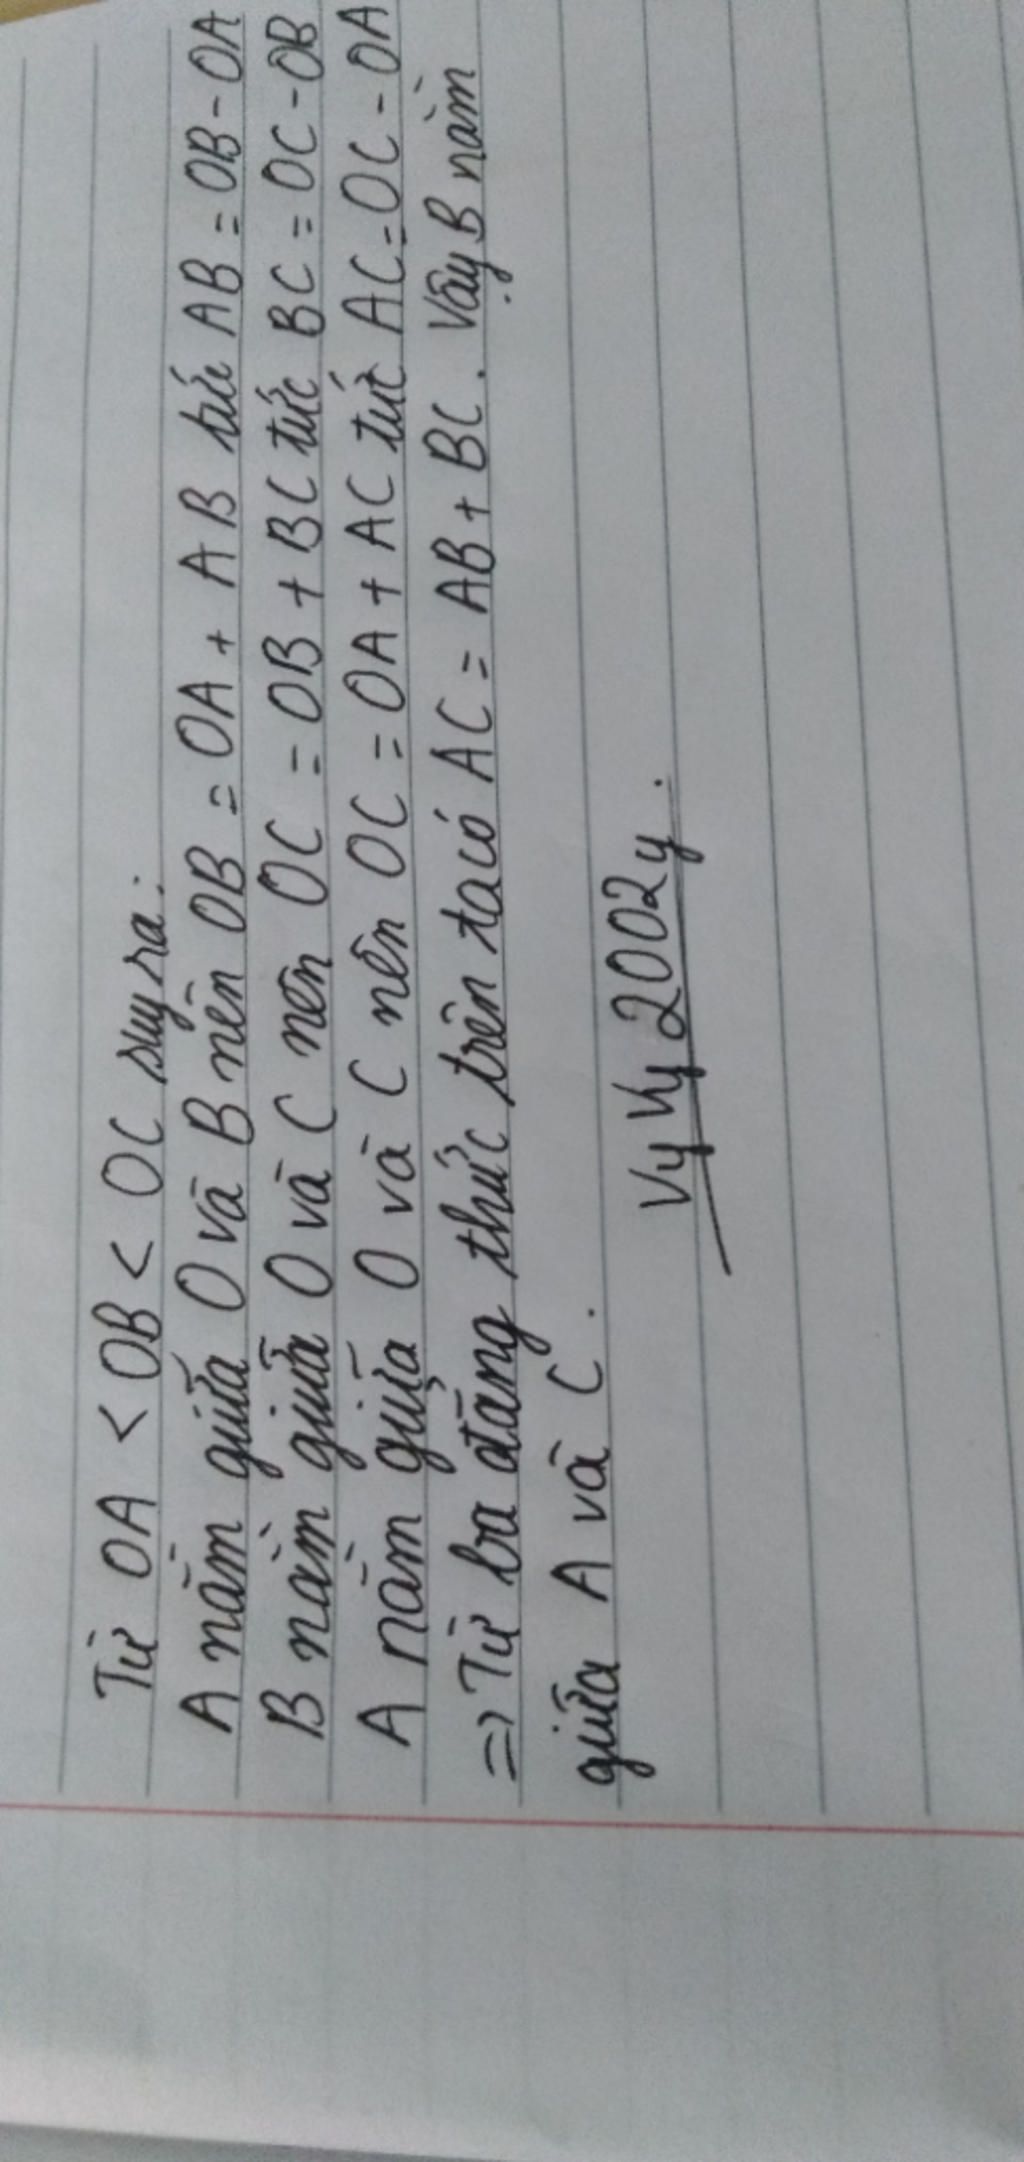 Từ OA < OB < OC suy ra:
A nằm giữa O và B nên OB = OA + AB tức AB = OB - OA
B nằm giữa O và C nên OC = OB + BC tức BC = OC - OB
A nằm giữa O và C nên OC = OA + AC tức AC = OC - OA
=> Từ ba đẳng thức trên ta có AC = AB + BC. Vậy B nằm
giữa A và C.
VyVy2002y.